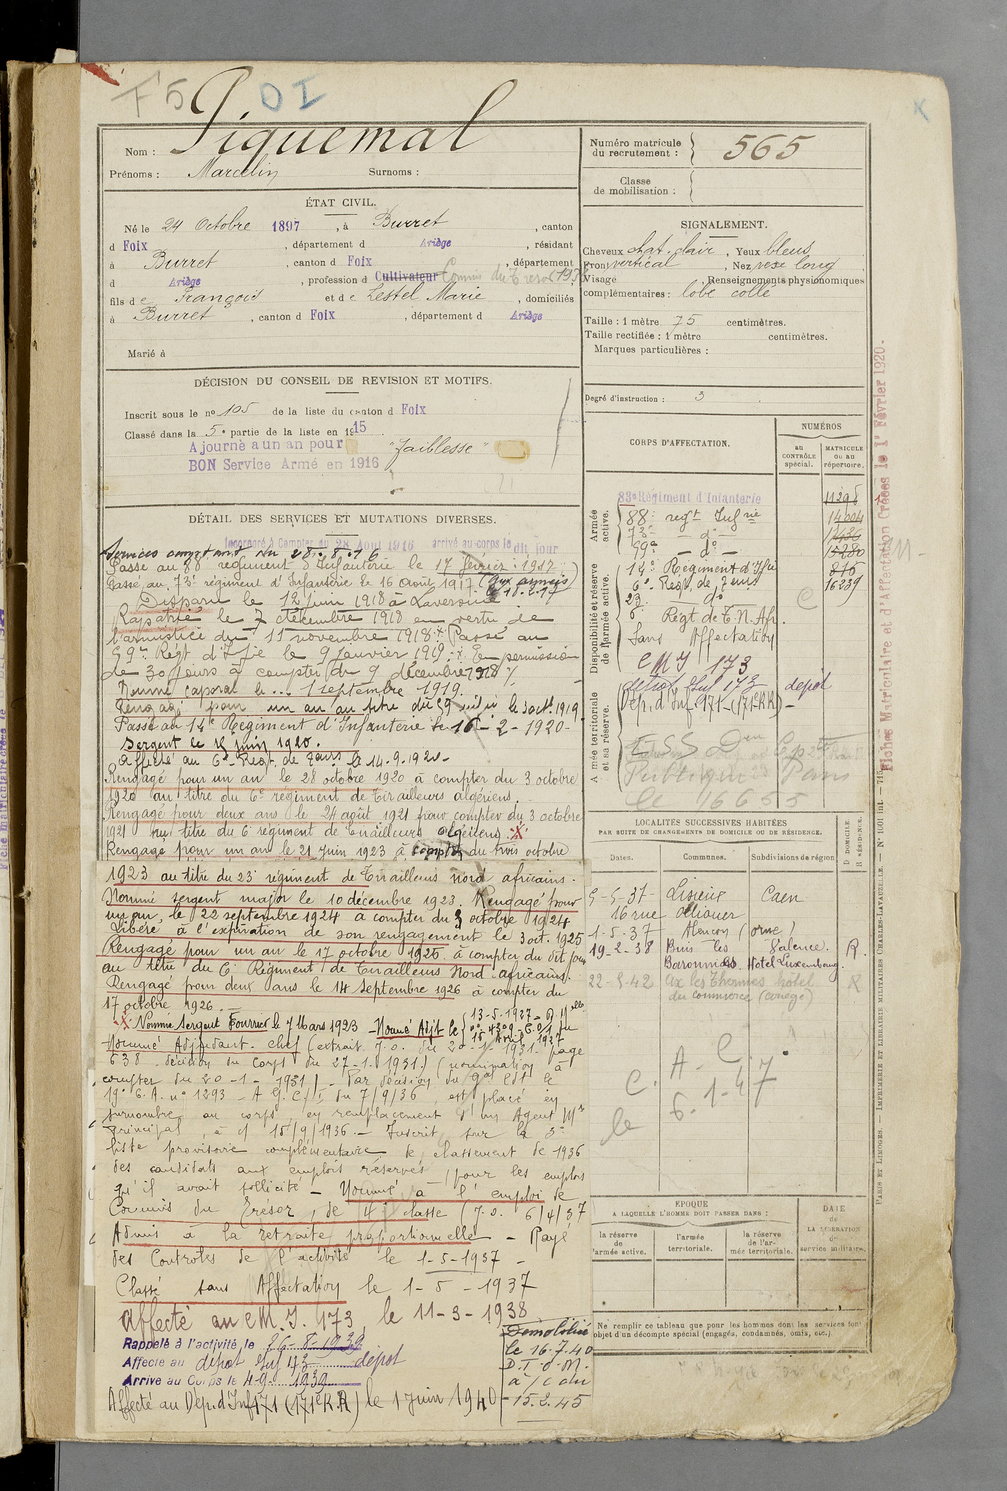 F5 OI
Nom : Piquemal
Prénoms : Marcelin Surnoms :
ÉTAT CIVIL.
Né le 24 Octobre 1897, à Burret, canton
d Foix, département d Ariège, résidant
à Burret, canton d Foix, département
d Ariège, profession d Cultivateur Commis du Trésor
fils de François et de Lestel Marie, domiciliés
à Burret, canton d Foix, département d Ariège
Marié à
DÉCISION DU CONSEIL DE REVISION ET MOTIFS.
Inscrit sous le n° 105 de la liste du canton d Foix
Classé dans la 5e partie de la liste en 1915
Ajourné à un an pour "faiblesse"
BON Service Armé en 1916
DÉTAIL DES SERVICES ET MUTATIONS DIVERSES.
Incorporé à Compter du 28 Aout 1916 arrivé au corps le dit jour
Services comptant du 28.8.16
Passé au 88e régiment d'Infanterie le 17 février 1917.
Passé au 73e régiment d'Infanterie le 16 Août 1917 (aux armées
le 18.2.17)
Disparu le 12 juin 1918 à Laversine
Rapatrié le 7 décembre 1918 en vertu de
l'armistice du 11 novembre 1918. Passé au
59e Régt d'Ifie le 9 Janvier 1919. En permission
de 30 jours à compter du 9 décembre 1918
Nommé caporal le 1 septembre 1919.
Rengagé pour un an au titre du 59 le 3 oct. 1919
Passé au 14e Régiment d'Infanterie le 16-2-1920-
Sergent le juin 1920.
Affecté au 6e Régt. de Tirs le 14.9.1920.
Rengagé pour un an le 28 octobre 1920 à compter du 3 octobre
1920 au titre du 6e régiment de Tirailleurs algériens.
Rengagé pour deux ans le 24 août 1921 pour compter du 3 octobre
1921 au titre du 6e régiment de Tirailleurs algériens. X
Rengagé pour un an le 21 Juin 1923 à compter du trois octobre
1923 au titre du 23e régiment de Tirailleurs nord africains.
Nommé sergent major le 10 décembre 1923. Rengagé pour
un an, le 22 septembre 1924 à compter du 3 octobre 1924
Libéré à l'expiration de son rengagement le 3 oct. 1925
Rengagé pour un an le 17 octobre 1925 à compter du dit jour
au titre du 6e Régiment de Tirailleurs Nord africains.
Rengagé pour deux ans le 14 Septembre 1926 à compter du
17 octobre 1926.
X Nommé Sergent Fourrier le 7 Mars 1923 - Nommé Adjt le 13-5-1927
Nommé Adjudant-chef (extrait J.O. du 20-1-1931 page
638 décision du Corps du 27-1-1931) (nomination à
compter du 20-1-1931). Par décision du Gal Cdt le
19e C.A. n° 1293 - A.G.C/1 du 7/9/36, est placé en
surnombre au corps, en remplacement d'un Agent Mre
Principal, à c/ 15/9/1936. - Inscrit sur la 3e
liste provisoire complémentaire de classement de 1936
des candidats aux emplois réservés (pour les emplois
qu'il avait sollicité - Nommé à l'emploi de
Commis du Trésor, de 4e classe (J.O. 6/4/37
Admis à la retraite proportionnelle - Rayé
des Contrôles de l'activité le 1-5-1937 -
Classé sans Affectation le 1-5-1937
Affecté au C M. J. 173, le 11-3-1938
Rappelé à l'activité le 26-8-1939
Affecté au dépôt Inf 43 dépôt
Arrivé au Corps le 4-9-1939
Affecté au Dép. d'Inf 171 (171e R.R) le 1 Juin 1940
Démobilisé
le 16.7.40
D.T.O.M.
à /c du
15.2.45
Numéro matricule du recrutement : 565
Classe de mobilisation :
SIGNALEMENT.
Cheveux chat. clair, Yeux bleus
Front vertical, Nez vexe long
Visage , Renseignements physionomiques
complémentaires : lobe collé
Taille : 1 mètre 75 centimètres.
Taille rectifiée : 1 mètre centimètres.
Marques particulières :
Degré d'instruction : 3
CORPS D'AFFECTATION.
NUMÉROS
au CONTRÔLE spécial.
MATRICULE ou au répertoire.
Armée active.
83e Régiment d'Infanterie
88e regt Infrie 14004
73e - do -
59e - do -
Disponibilité et réserve de l'armée active.
14e Régiment d'Ifie
6e Regt. de Tirs 16239
23e do
6e Régt de T. N. Af.
Sans Affectation
C M J 173
Armée territoriale et sa réserve.
dépôt Inf 173 dépôt
Dép. d'Inf 171 (171e RR) -
le 16655
LOCALITÉS SUCCESSIVES HABITÉES
PAR SUITE DE CHANGEMENTS DE DOMICILE OU DE RÉSIDENCE.
Dates. Communes. Subdivisions de région. D DOMICILE R RÉSIDENCE.
5-5-37 Lisieux Caen
16 rue
1-5-37 Alençon (orne)
19-2-38 Buis les Valence. R.
Baronnies Hotel Luxembourg.
22-5-42 Ax les Thermes hotel R
du commerce (ariège)
A. C.
C. 6.1-47
le
EPOQUE
A LAQUELLE L'HOMME DOIT PASSER DANS :
DATE DE LA LIBÉRATION du service militaire.
la réserve de l'armée active.
l'armée territoriale.
la réserve de l'armée territoriale.
Ne remplir ce tableau que pour les hommes dont les services font
objet d'un décompte spécial (engagés, condamnés, omis, etc.)
Fiches Matriculaire et d'Affectation Créées le 1r Février 1920.
PARIS ET LIMOGES. — IMPRIMERIE ET LIBRAIRIE MILITAIRES CHARLES-LAVAUZELLE